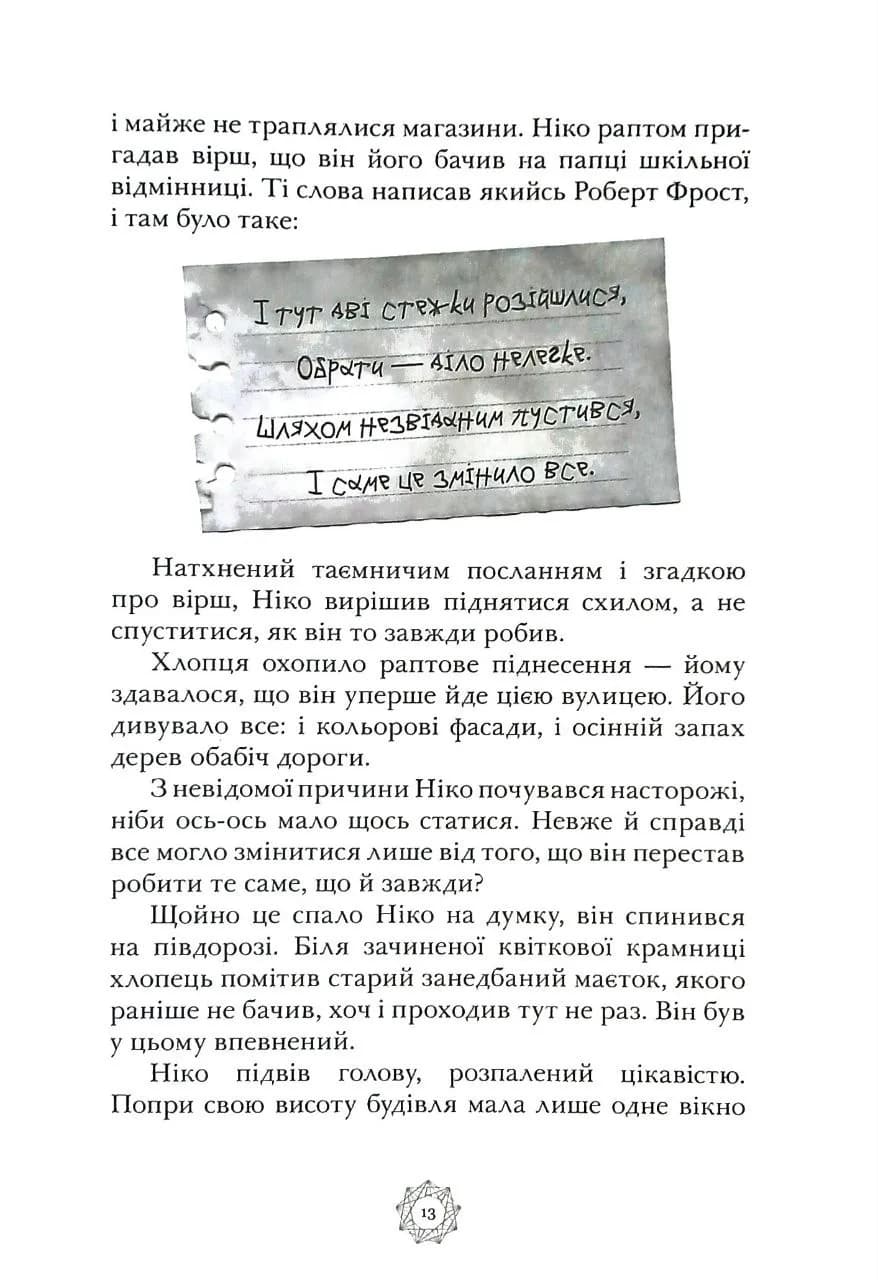 і майже не траплялися магазини. Ніко раптом при-
гадав вірш, що він його бачив на папці шкільної
відмінниці. Ті слова написав якийсь Роберт Фрост,
і там було таке:
І тут дві стежки розійшлися,
Обрати — діло нелегке.
Шляхом незвіданим пустився,
І саме це змінило все.
Натхнений таємничим посланням і згадкою
про вірш, Ніко вирішив піднятися схилом, а не
спуститися, як він то завжди робив.
Хлопця охопило раптове піднесення — йому
здавалося, що він уперше йде цією вулицею. Його
дивувало все: і кольорові фасади, і осінній запах
дерев обабіч дороги.
З невідомої причини Ніко почувався насторожі,
ніби ось-ось мало щось статися. Невже й справді
все могло змінитися лише від того, що він перестав
робити те саме, що й завжди?
Щойно це спало Ніко на думку, він спинився
на півдорозі. Біля зачиненої квіткової крамниці
хлопець помітив старий занедбаний маєток, якого
раніше не бачив, хоч і проходив тут не раз. Він був
у цьому впевнений.
Ніко підвів голову, розпалений цікавістю.
Попри свою висоту будівля мала лише одне вікно
13